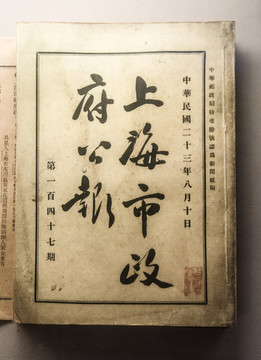 中華郵政局特准掛號認為新聞紙類
中華民國二十三年八月十日
上海市政
府公報
第一百四十七期